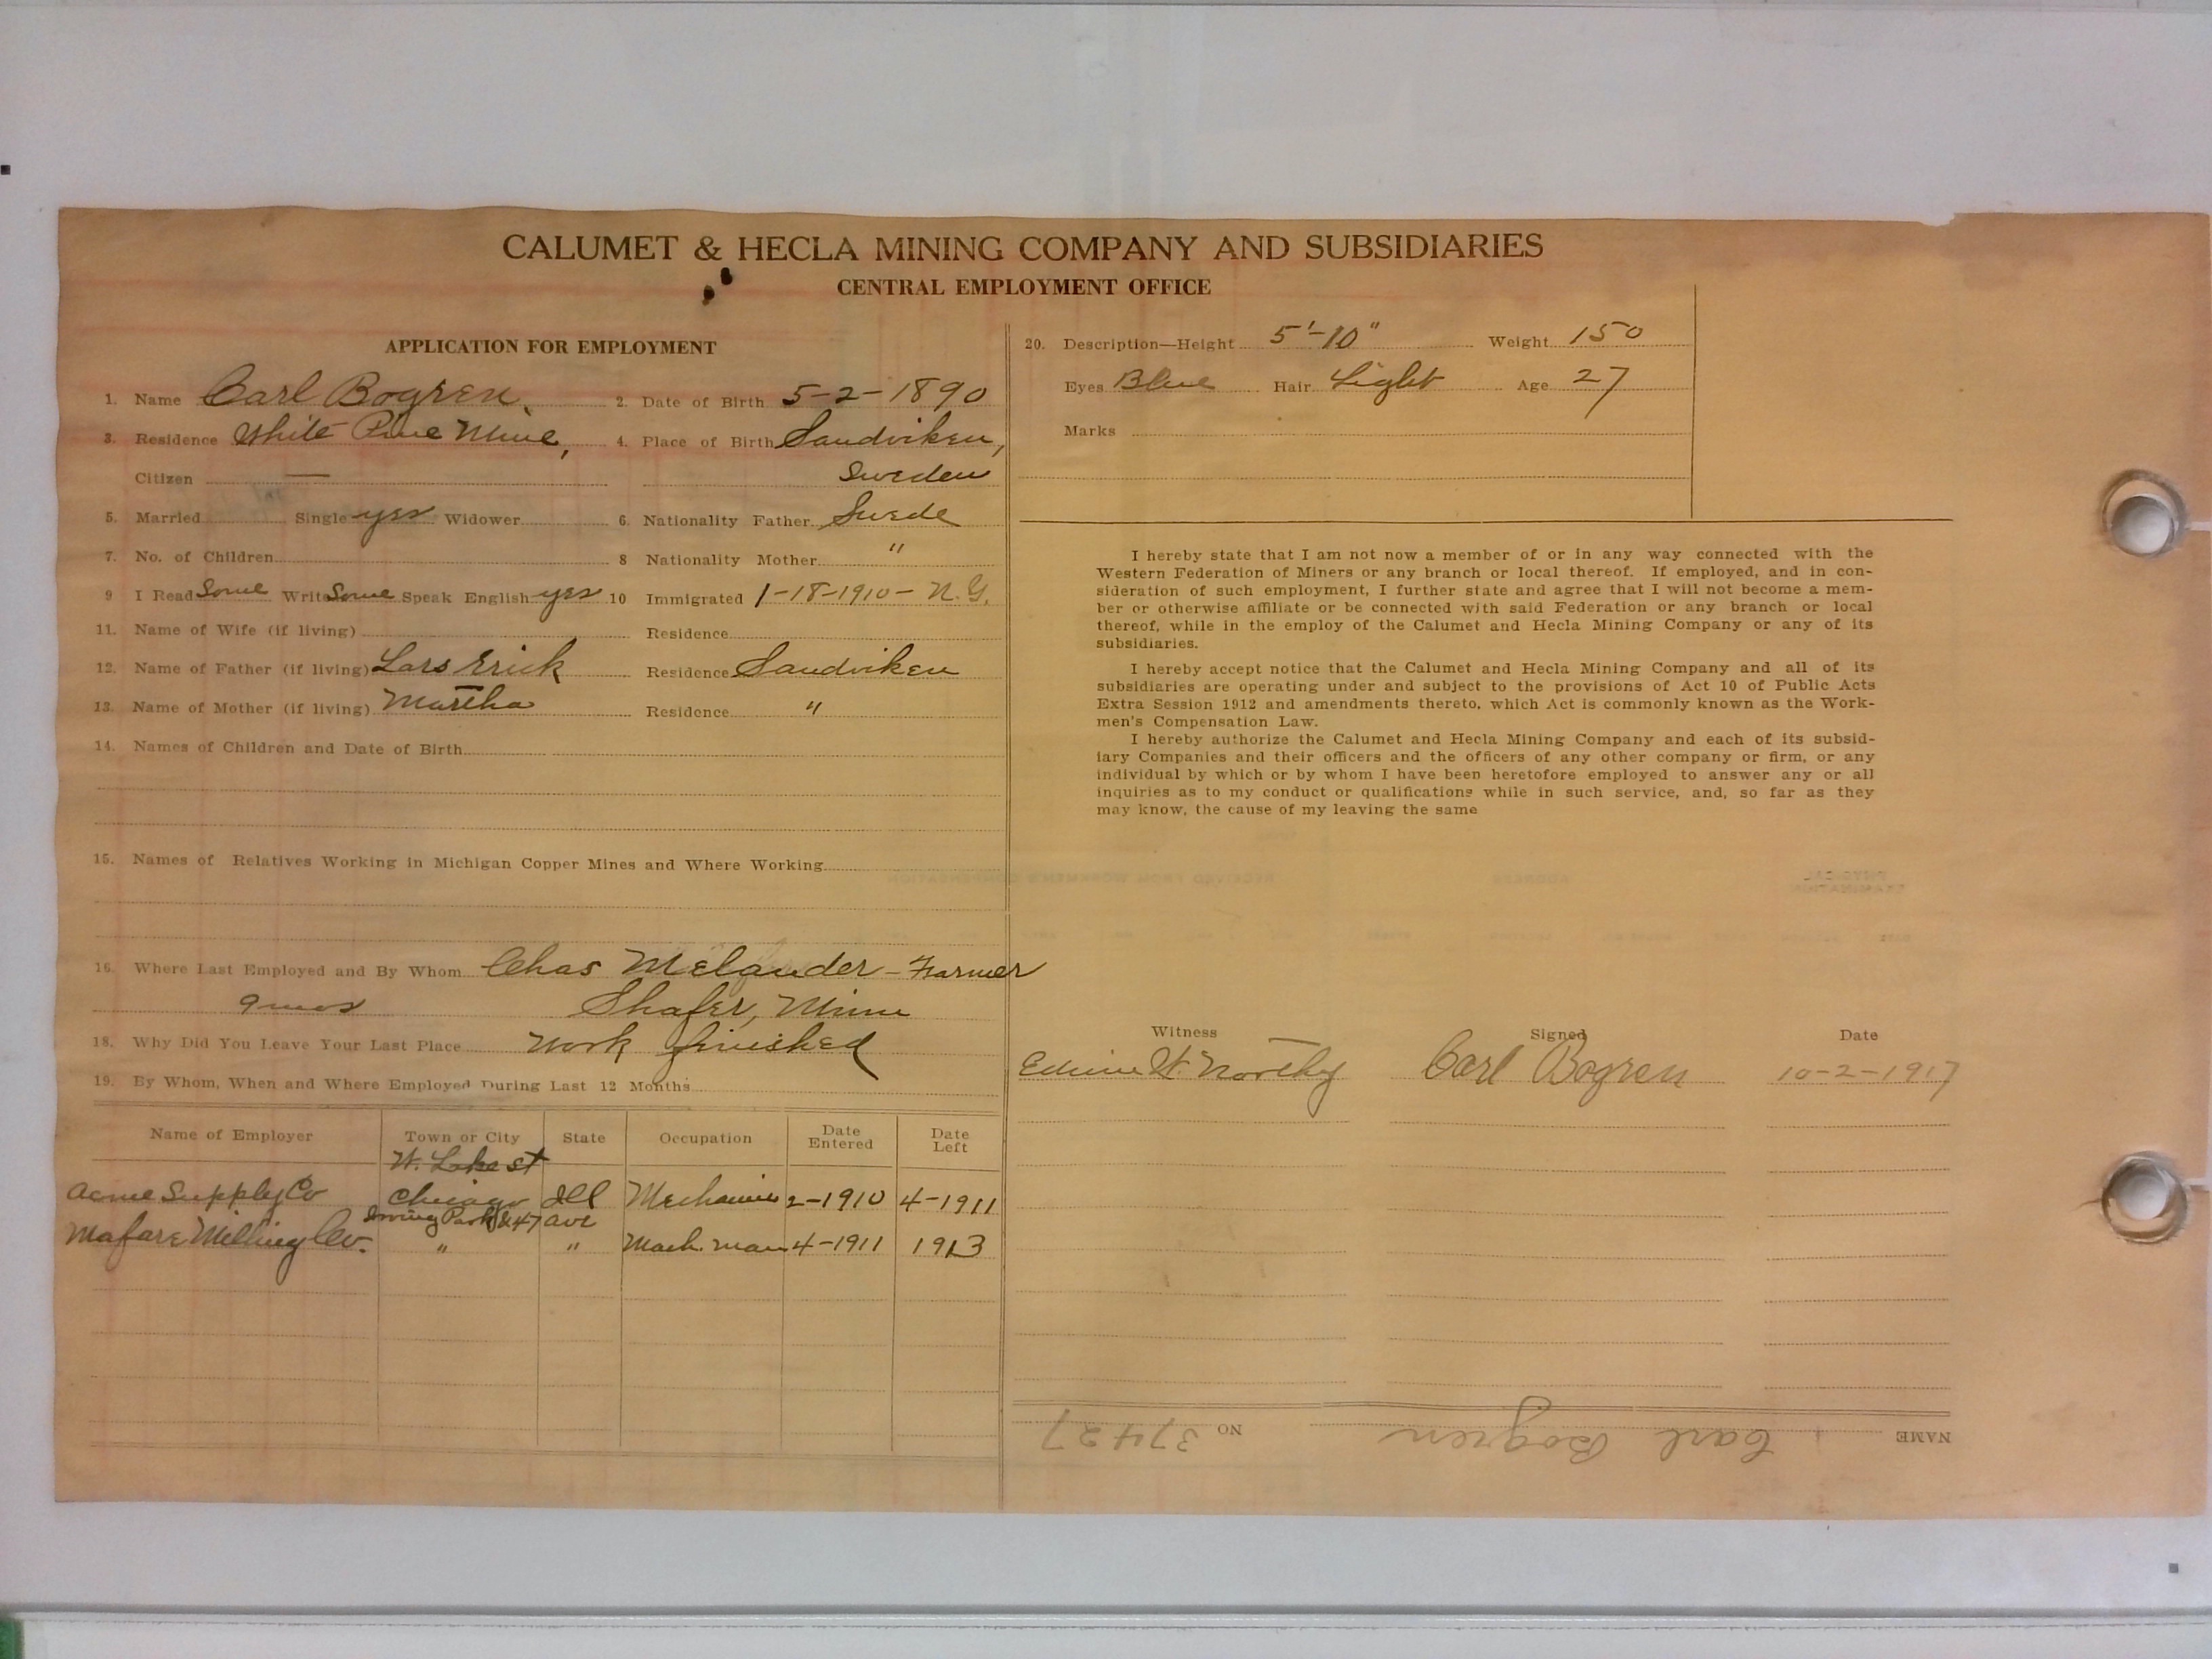 CALUMET & HECLA MINING COMPANY AND SUBSIDIARIES
CENTRAL EMPLOYMENT OFFICE
APPLICATION FOR EMPLOYMENT
1. Name Carl Bogren. 2. Date of Birth 5-2-1890
3. Residence White Pine Mine, 4. Place of Birth Sandviken,
Citizen — Sweden
5. Married Single yes Widower 6. Nationality Father Swede
7. No. of Children 8 Nationality Mother "
9 I Read Some Write Some Speak English yes 10 Immigrated 1-18-1910- N.Y.
11. Name of Wife (if living) Residence
12. Name of Father (if living) Lars Erick Residence Sandviken
13. Name of Mother (if living) Martha Residence "
14. Names of Children and Date of Birth
15. Names of Relatives Working in Michigan Copper Mines and Where Working
16. Where Last Employed and By Whom Chas Melander - Farmer
9 mos Shafer, Minn
18. Why Did You Leave Your Last Place Work finished
19. By Whom, When and Where Employed During Last 12 Months
Name of Employer Town or City State Occupation Date Entered Date Left
W. Lake st
Acme Supply Co Chicago Ill Mechanic 2-1910 4-1911
Irving Park & 47 ave
Mafare Milling Co. " " Mach. man 4-1911 1913
20. Description—Height 5'-10" Weight 150
Eyes Blue Hair Light Age 27
Marks
I hereby state that I am not now a member of or in any way connected with the
Western Federation of Miners or any branch or local thereof. If employed, and in con-
sideration of such employment, I further state and agree that I will not become a mem-
ber or otherwise affiliate or be connected with said Federation or any branch or local
thereof, while in the employ of the Calumet and Hecla Mining Company or any of its
subsidiaries.
I hereby accept notice that the Calumet and Hecla Mining Company and all of its
subsidiaries are operating under and subject to the provisions of Act 10 of Public Acts
Extra Session 1912 and amendments thereto, which Act is commonly known as the Work-
men's Compensation Law.
I hereby authorize the Calumet and Hecla Mining Company and each of its subsid-
iary Companies and their officers and the officers of any other company or firm, or any
individual by which or by whom I have been heretofore employed to answer any or all
inquiries as to my conduct or qualifications while in such service, and, so far as they
may know, the cause of my leaving the same
Witness Signed Date
Edwin W Northey Carl Bogren 10-2-1917
NAME Carl Bogren NO 37427